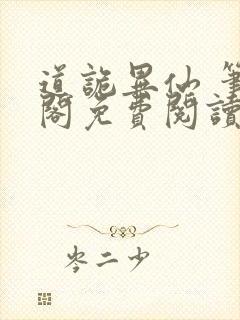 道詭異仙 筆
閣免費閱讀
岑二少